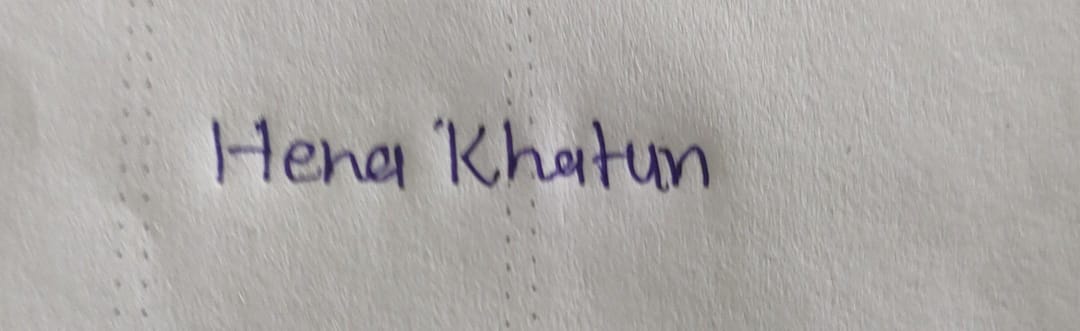 Hena Khatun